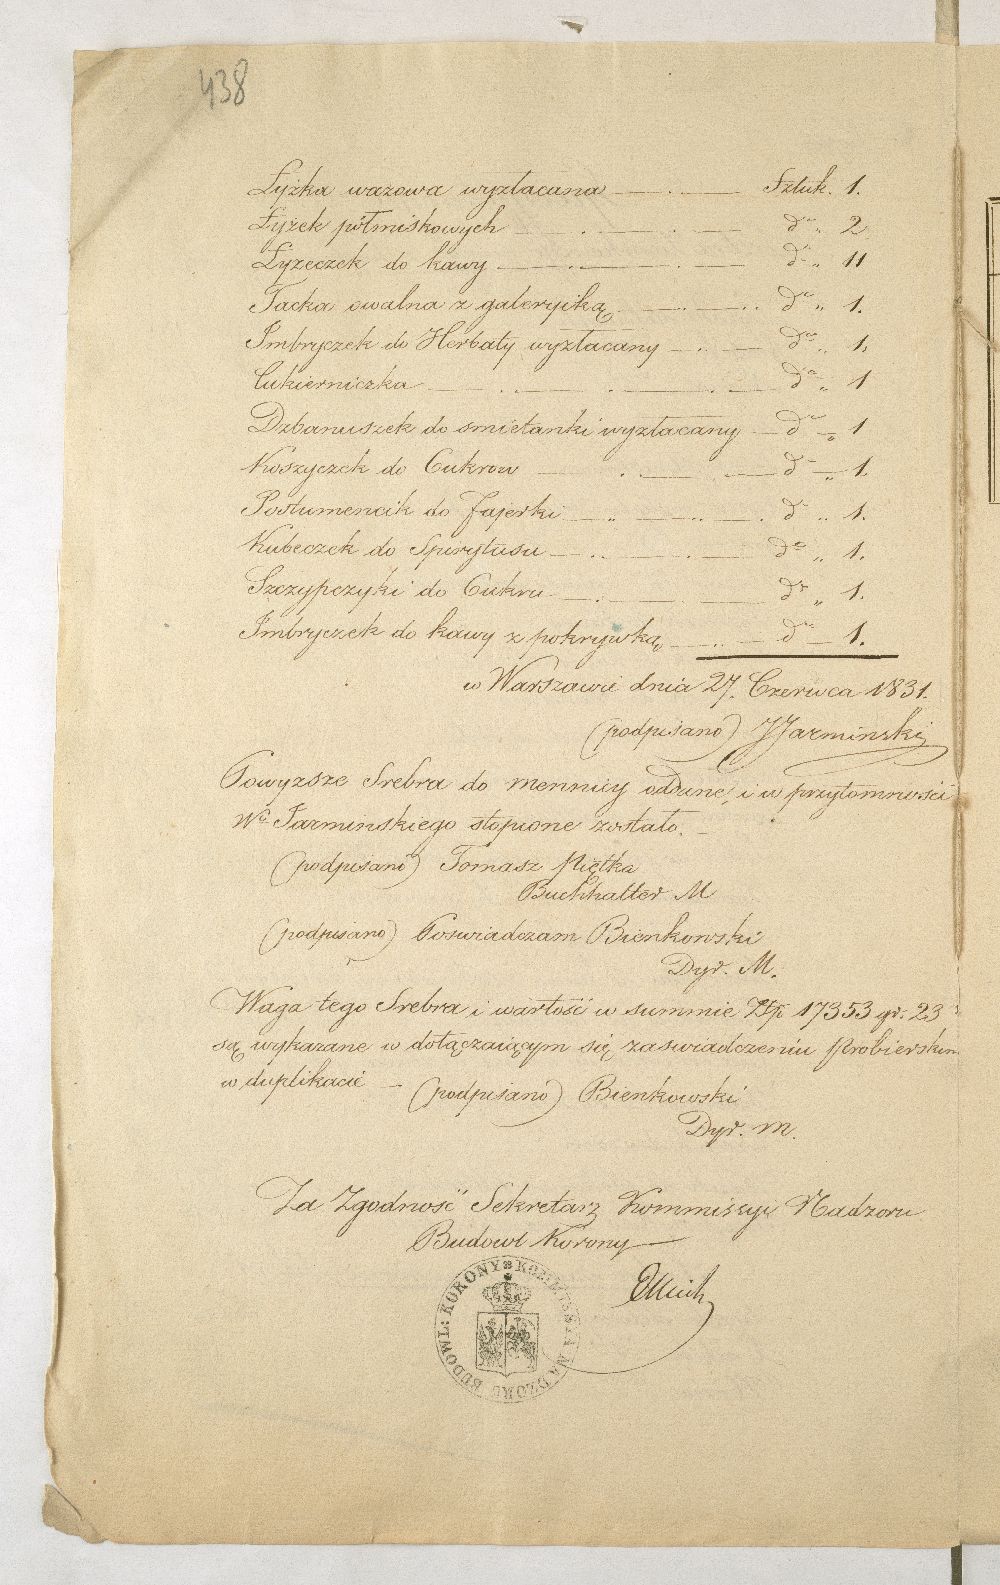 438
Łyżka wazowa wyzłacana — . — Sztuk. 1.
Łyżek półmiskowych — . — . — do „ 2
Łyżeczek do kawy — . — . — do „ 11
Tacka owalna z galeryiką — . — .. do „ 1.
Imbryczek do Herbaty wyzłacany — . — do „ 1.
Cukierniczka — . . — . — . — do „ 1
Dzbanuszek do smietanki wyzłacany — do — „ 1
Koszyczek do Cukrow — . — . — do — „ 1.
Postumencik do fajerki — „ — „ — . do „ 1.
Kubeczek do Spirytusu — .. — . — do „ 1.
Szczypczyki do Cukru — . — — do „ 1.
Imbryczek do kawy z pokrywką — .. — do — 1.
w Warszawie dnia 27. Czerwca 1831.
(podpisano) J Jarminski
Powyzsze Srebra do mennicy oddane, i w przytomności
Wo Jarminskiego stopione zostało. —
(podpisano) Tomasz Piętka
Buchhalter M
(podpisano) Poswiadczam Bienkowski
Dyr. M.
Waga tego Srebra i wartość w summie Złp 17353 gr: 23
są wykazane w dołączaiącym się zaswiadczeniu Probierskim
w duplikacie — (podpisano) Bienkowski
Dyr. M.
Za Zgodność Sekretarz Kommissyi Nadzoru
Budowl Korony —
KOMMISSYA NADZORU BUDOWL: KORONY